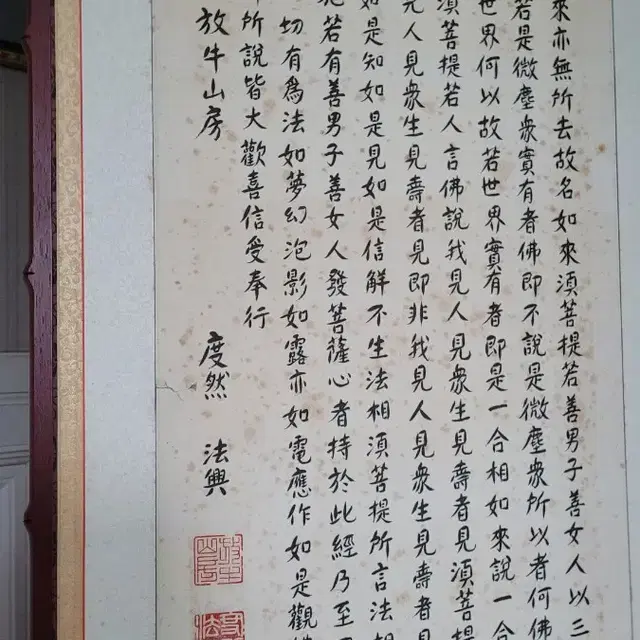 來亦無所去故名如來須菩提若善男子善女人以三
若是微塵衆實有者佛即不說是微塵衆所以者何佛
世界何以故若世界實有者即是一合相如來說一合
須菩提若人言佛說我見人見衆生見壽者見須菩提
見人見衆生見壽者見即非我見人見衆生見壽者見
如是知如是見如是信解不生法相須菩提所言法相
若有善男子善女人發菩薩心者持於此經乃至
切有爲法如夢幻泡影如露亦如電應作如是觀
所說皆大歡喜信受奉行
放牛山房 度然 法興